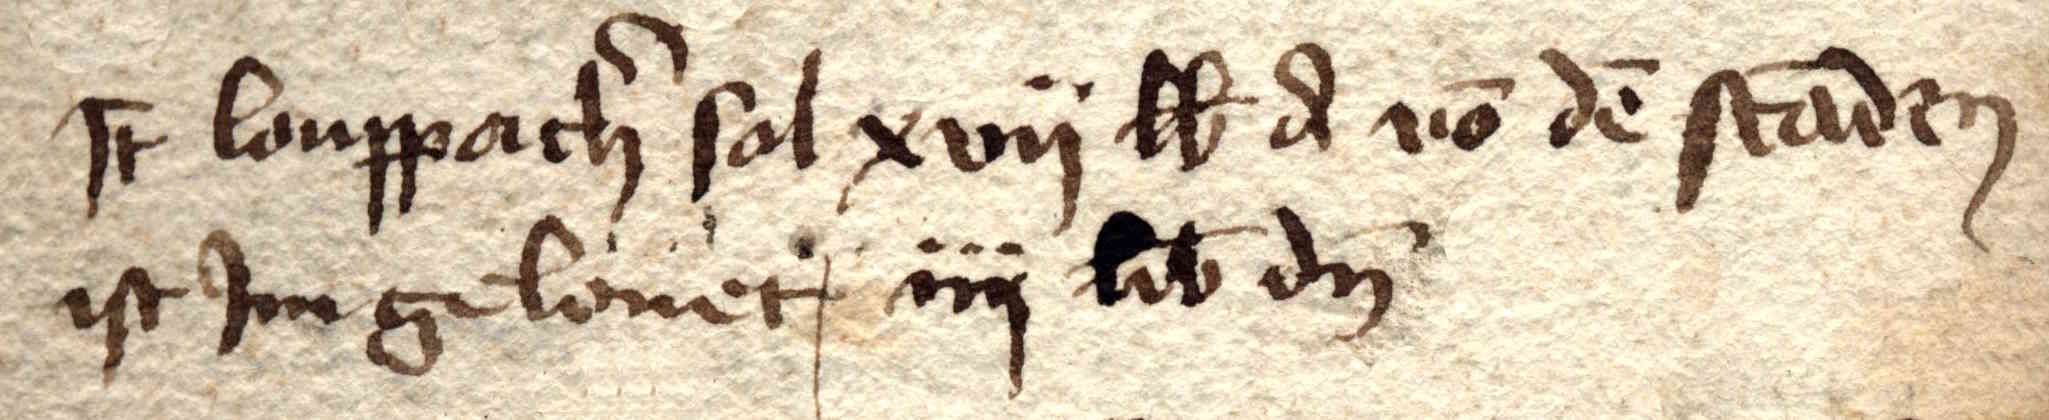 It louppach sol xvij lb d vō dē staden
ist Jm gelonet iiij lib dn